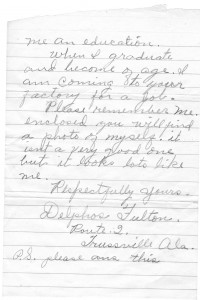 me an education.
When I graduate
and become of age. I
am coming to your
factory for a job.
Please remember me.
enclosed you will find
a photo of myself, it
isnt a very good one
but it looks lots like
me.
Respectfully Yours.
Delphos Fulton.
Route 2.
Trussville Ala.
P.S. please ans this